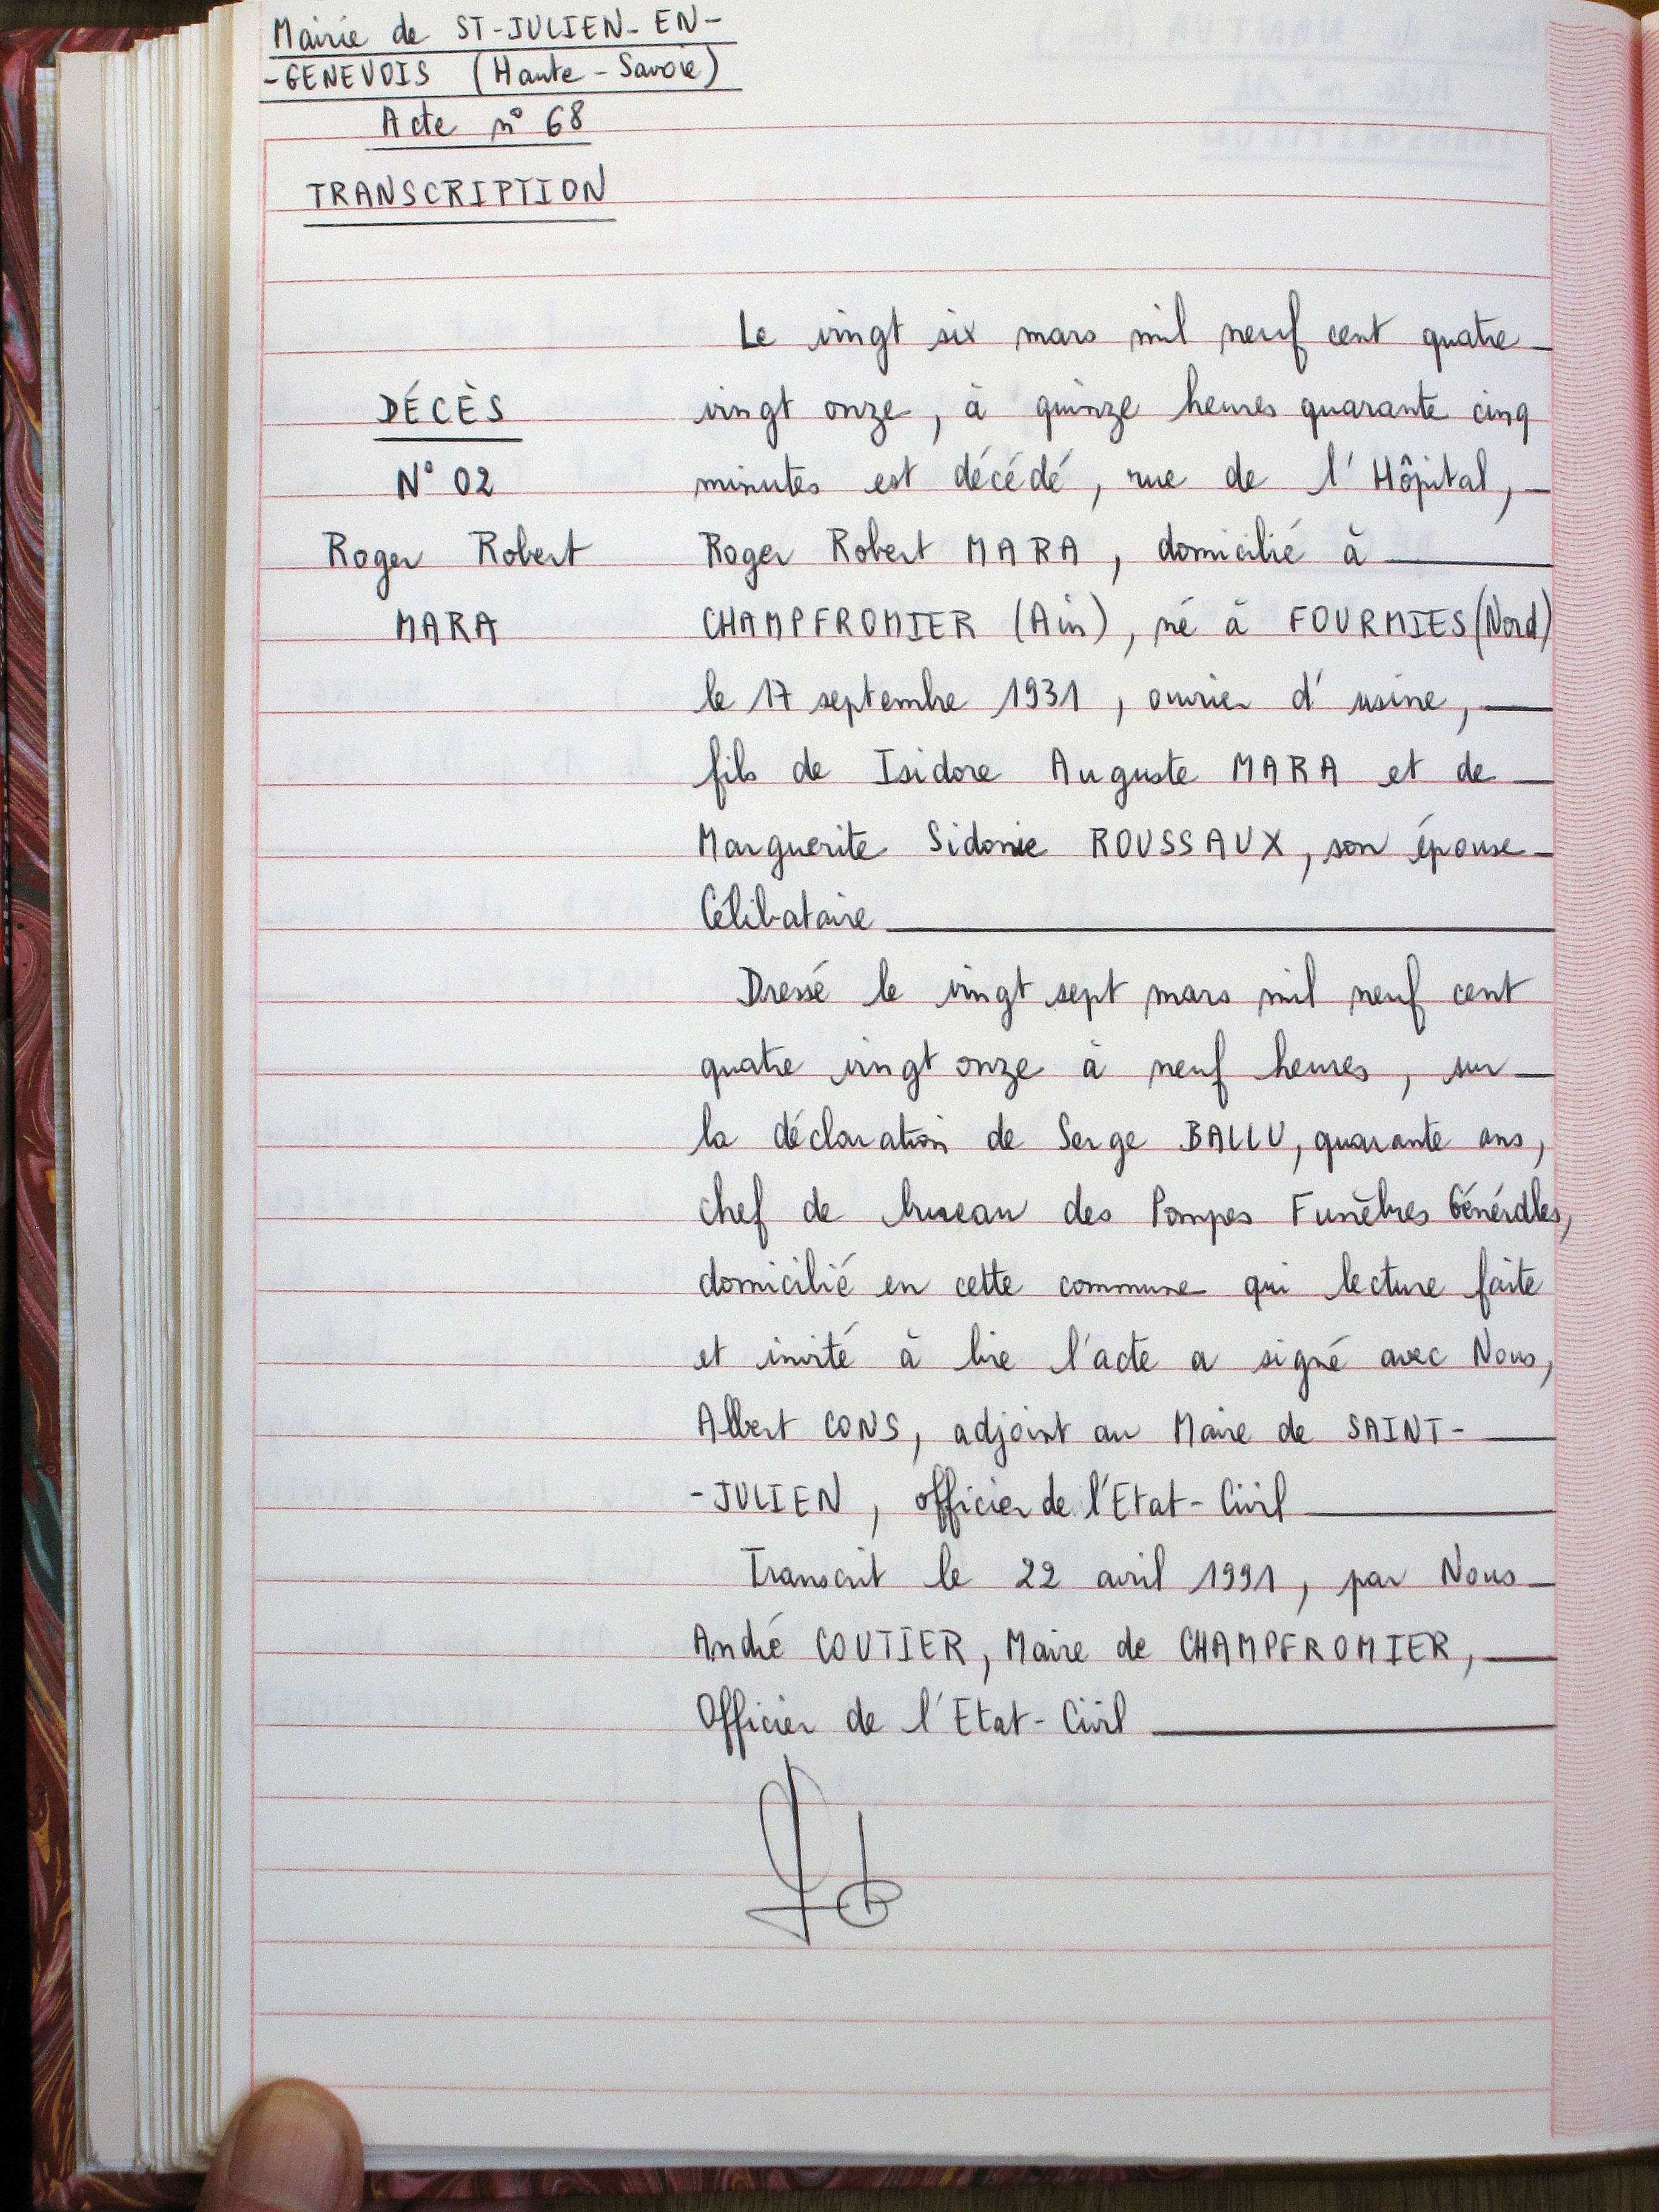 Mairie de ST-JULIEN-EN-
-GENEVOIS (Haute-Savoie)
Acte n° 68
TRANSCRIPTION
DÉCÈS
N° 02
Roger Robert
MARA
Le vingt six mars mil neuf cent quatre
vingt onze, à quinze heures quarante cinq
minutes est décédé, rue de l'Hôpital,
Roger Robert MARA, domicilié à
CHAMPFROMIER (Ain), né à FOURMIES (Nord)
le 17 septembre 1931, ouvrier d'usine,
fils de Isidore Auguste MARA et de
Marguerite Sidonie ROUSSAUX, son épouse
Célibataire
Dressé le vingt sept mars mil neuf cent
quatre vingt onze à neuf heures, sur
la déclaration de Serge BALLU, quarante ans,
chef de bureau des Pompes Funèbres Générales,
domicilié en cette commune qui lecture faite
et invité à lire l'acte a signé avec Nous,
Albert CONS, adjoint au Maire de SAINT-
-JULIEN, officier de l'Etat-Civil
Transcrit le 22 avril 1991, par Nous
André COUTIER, Maire de CHAMPFROMIER,
Officier de l'Etat-Civil